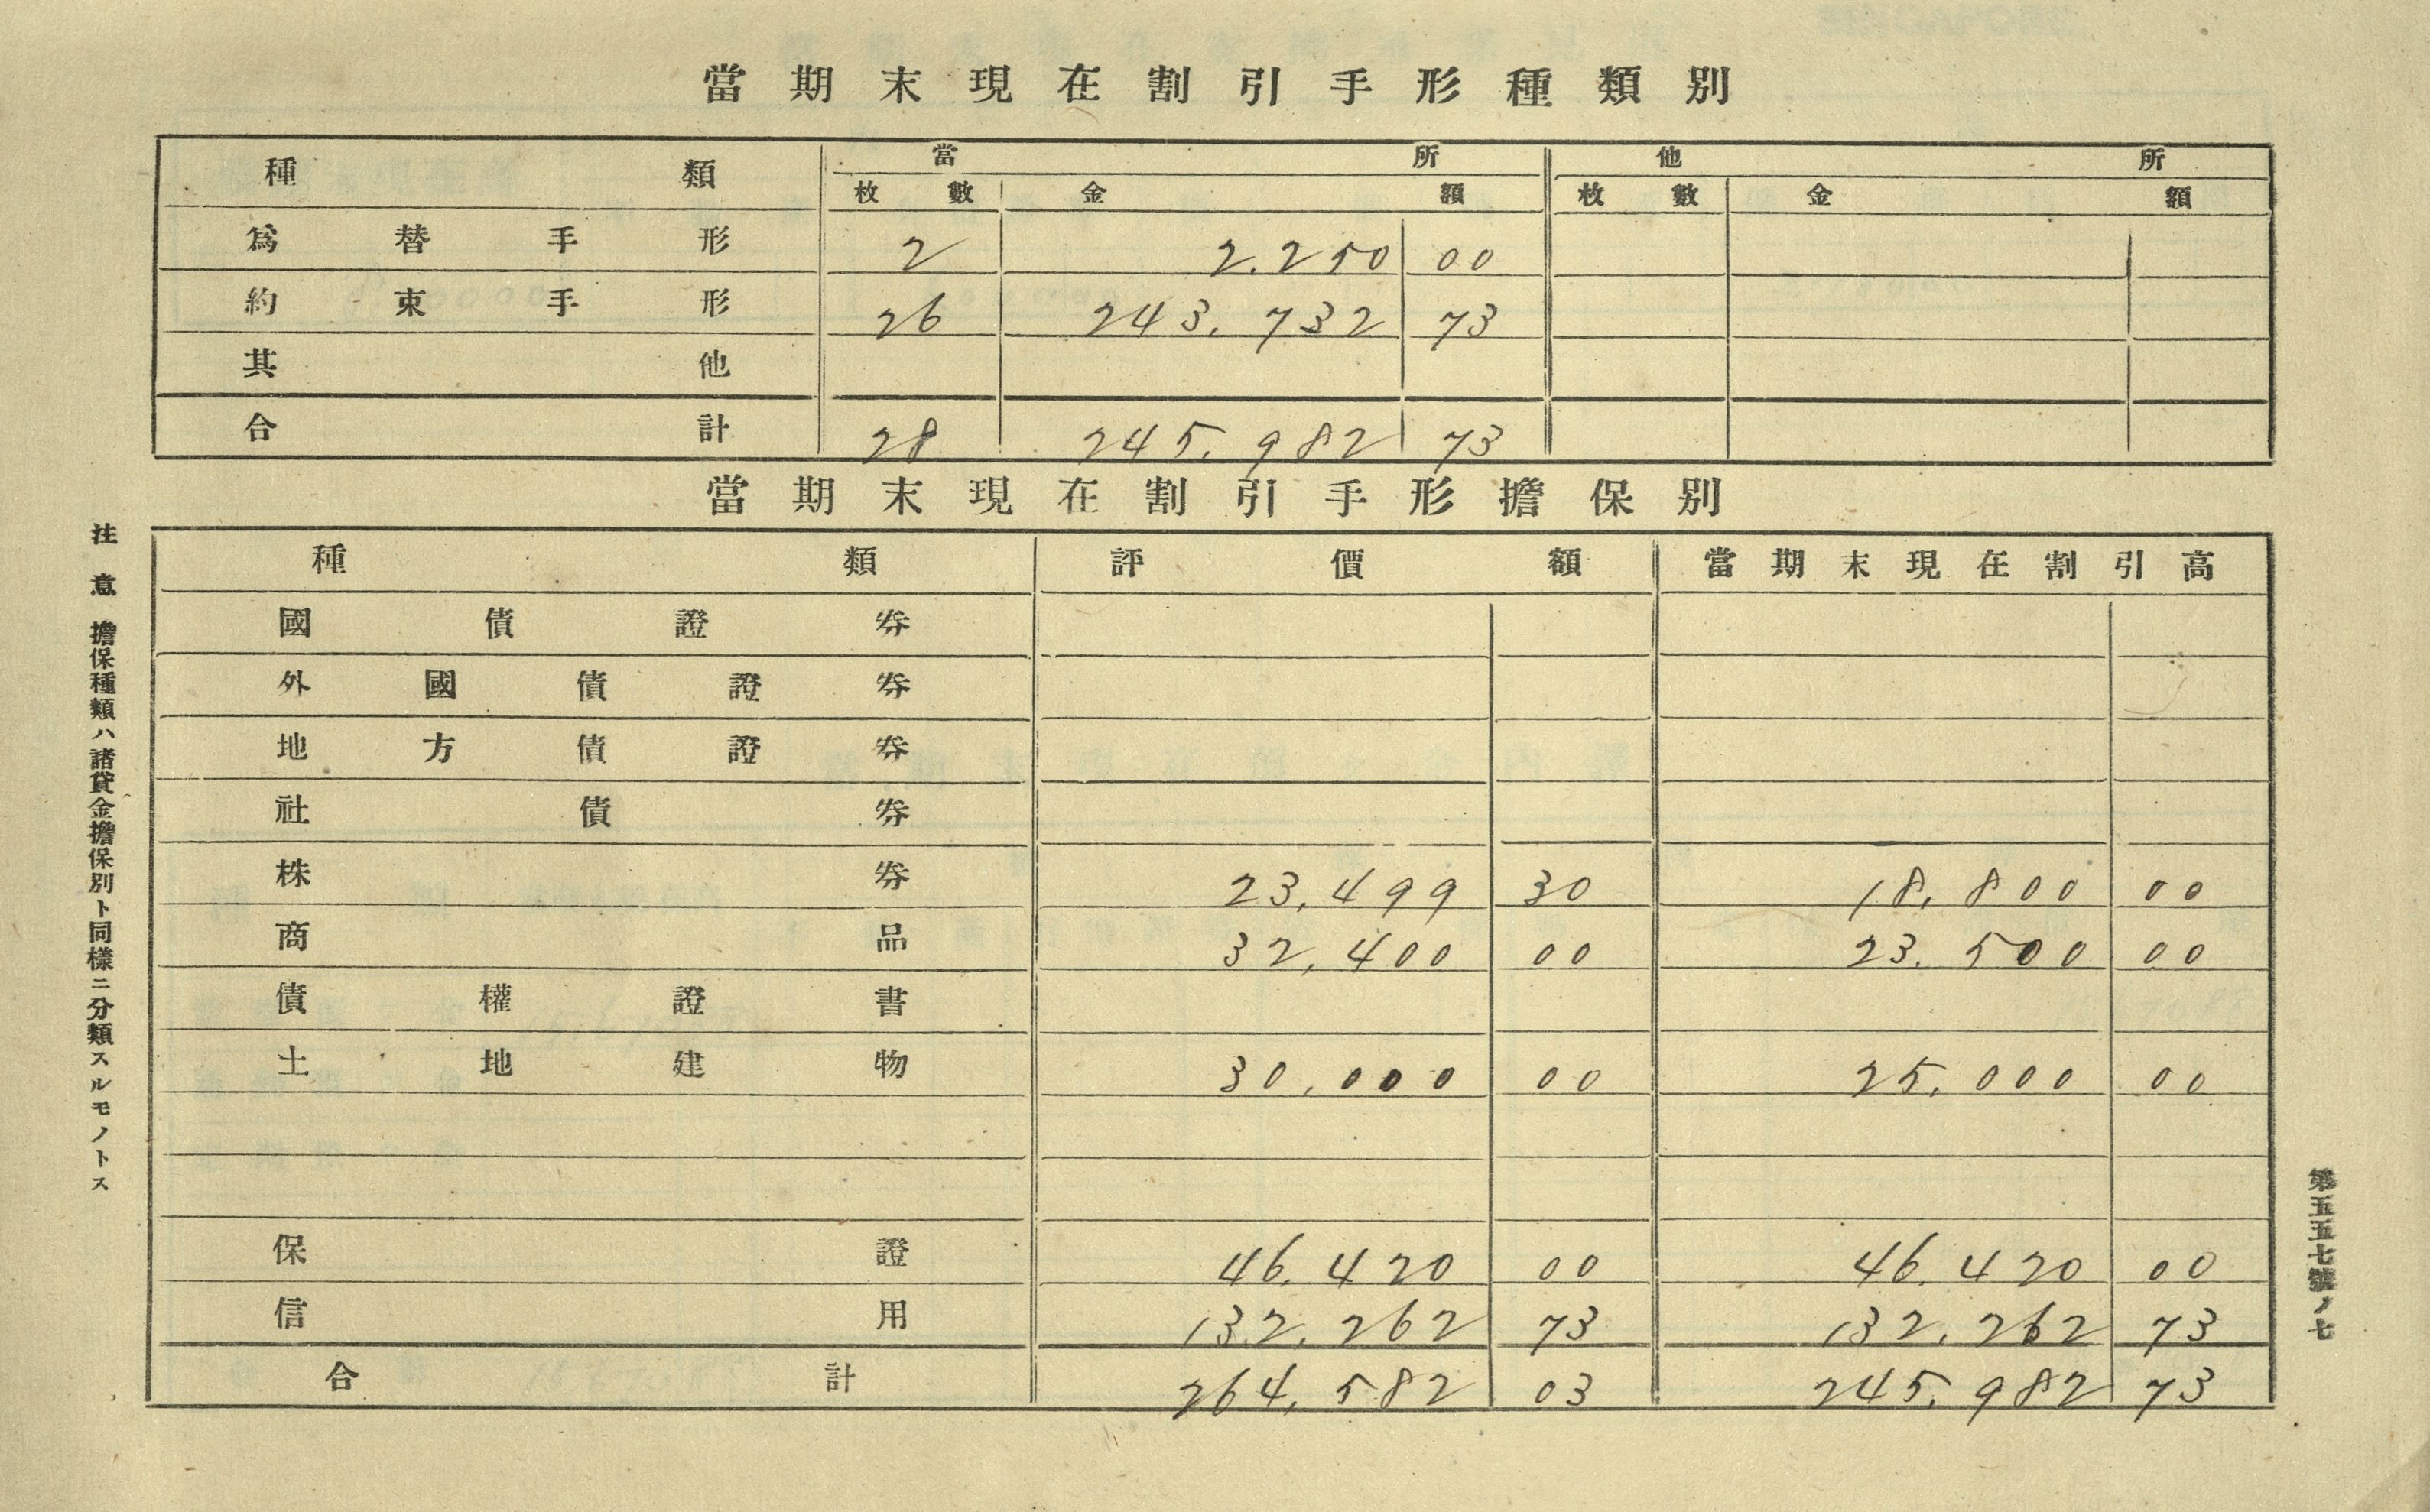 當期末現在割引手形種類別
種類 當所 他所
枚數 金額 枚數 金額
爲替手形 2 2.250 00
約束手形 26 243.732 73
其他
合計 28 245.982 73
當期末現在割引手形擔保別
種類 評價額 當期末現在割引高
國債證券
外國債證券
地方債證券
社債券
株券 23,499 30 18,800 00
商品 32,400 00 23.500 00
債權證書
土地建物 30,000 00 25,000 00
保證 46.420 00 46.420 00
信用 132,262 73 132,262 73
合計 264,582 03 245.982 73
注意 擔保種類ハ諸貸金擔保別ト同樣ニ分類スルモノトス
第五五七號ノ七